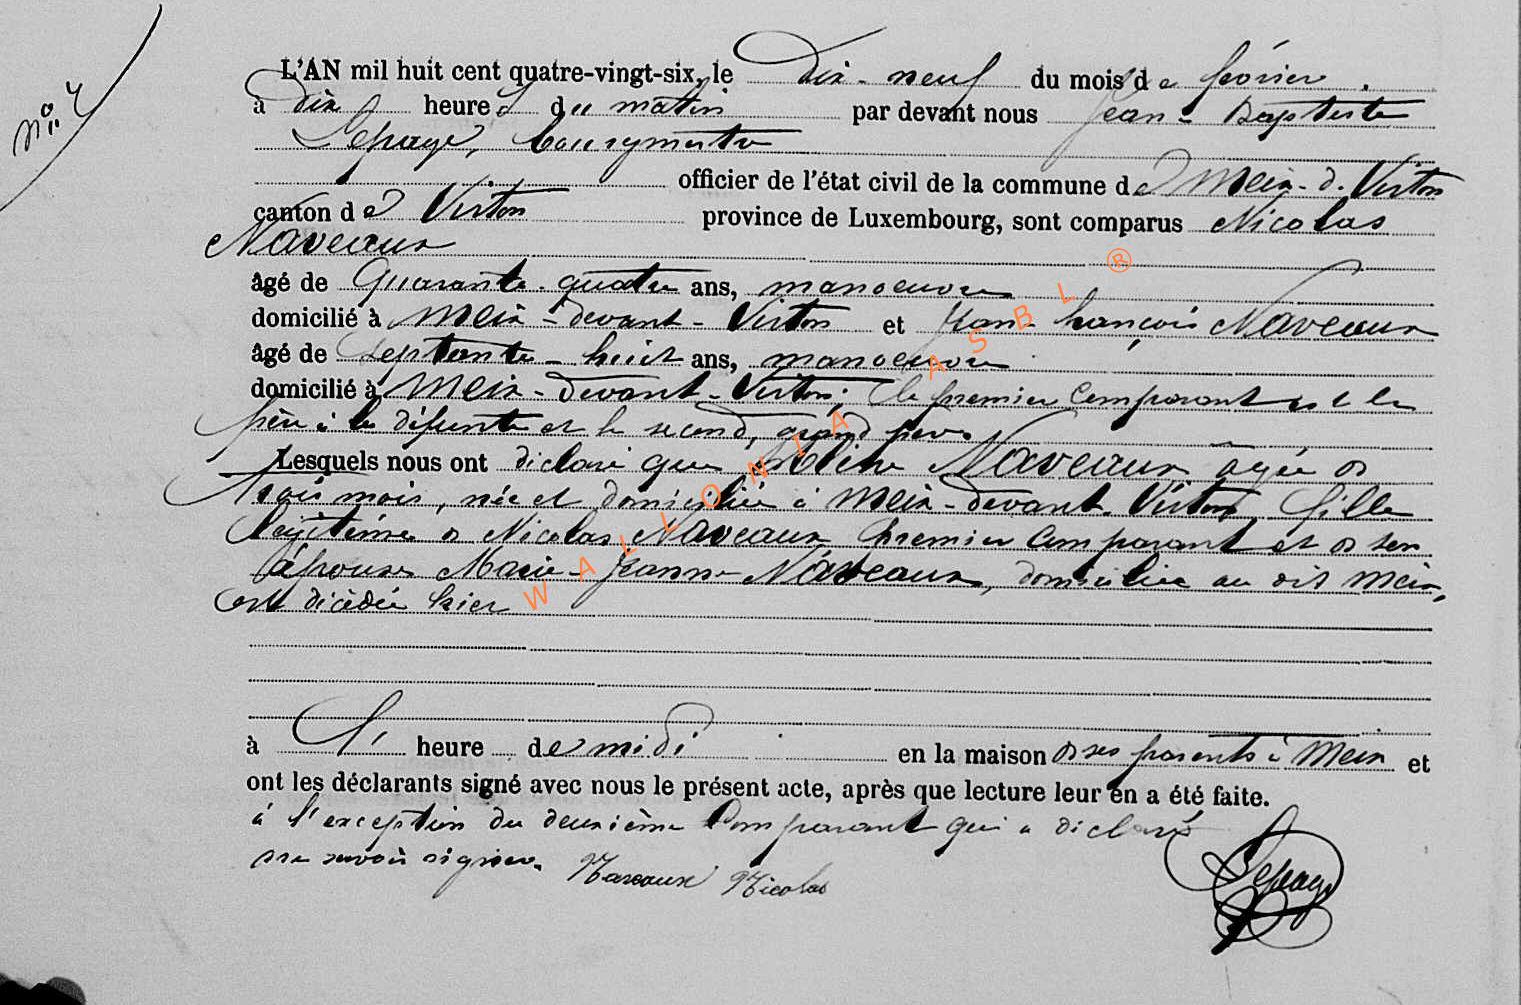 N° 7
L'AN mil huit cent quatre-vingt-six, le Dix-neuf du mois de février
à dix heures du matin par devant nous Jean-Baptiste
Lepage, bourgmestre
officier de l'état civil de la commune de Meix-d.-Virton
canton de Virton province de Luxembourg, sont comparus Nicolas
Naveaux
âgé de Quarante-quatre ans, manoeuvre
domicilié à Meix-devant-Virton et Jean-françois Naveaux
âgé de septante-huit ans, manoeuvre
domicilié à Meix-devant-Virton; le premier comparant est le
père à la défunte et le second, grand père
Lesquels nous ont déclaré que Naveaux âgée de
trois mois, née et domiciliée à Meix-devant-Virton, fille
légitime de Nicolas Naveaux premier comparant et de son
épouse Marie-Jeanne Naveaux, domiciliée au dit Meix,
est décédée hier
à heure de midi en la maison de ses parents à Meix et
ont les déclarants signé avec nous le présent acte, après que lecture leur en a été faite.
à l'exception du deuxième comparant qui a déclaré
ne savoir signer. Naveaux Nicolas Lepage
WALLONIA ASBL ®